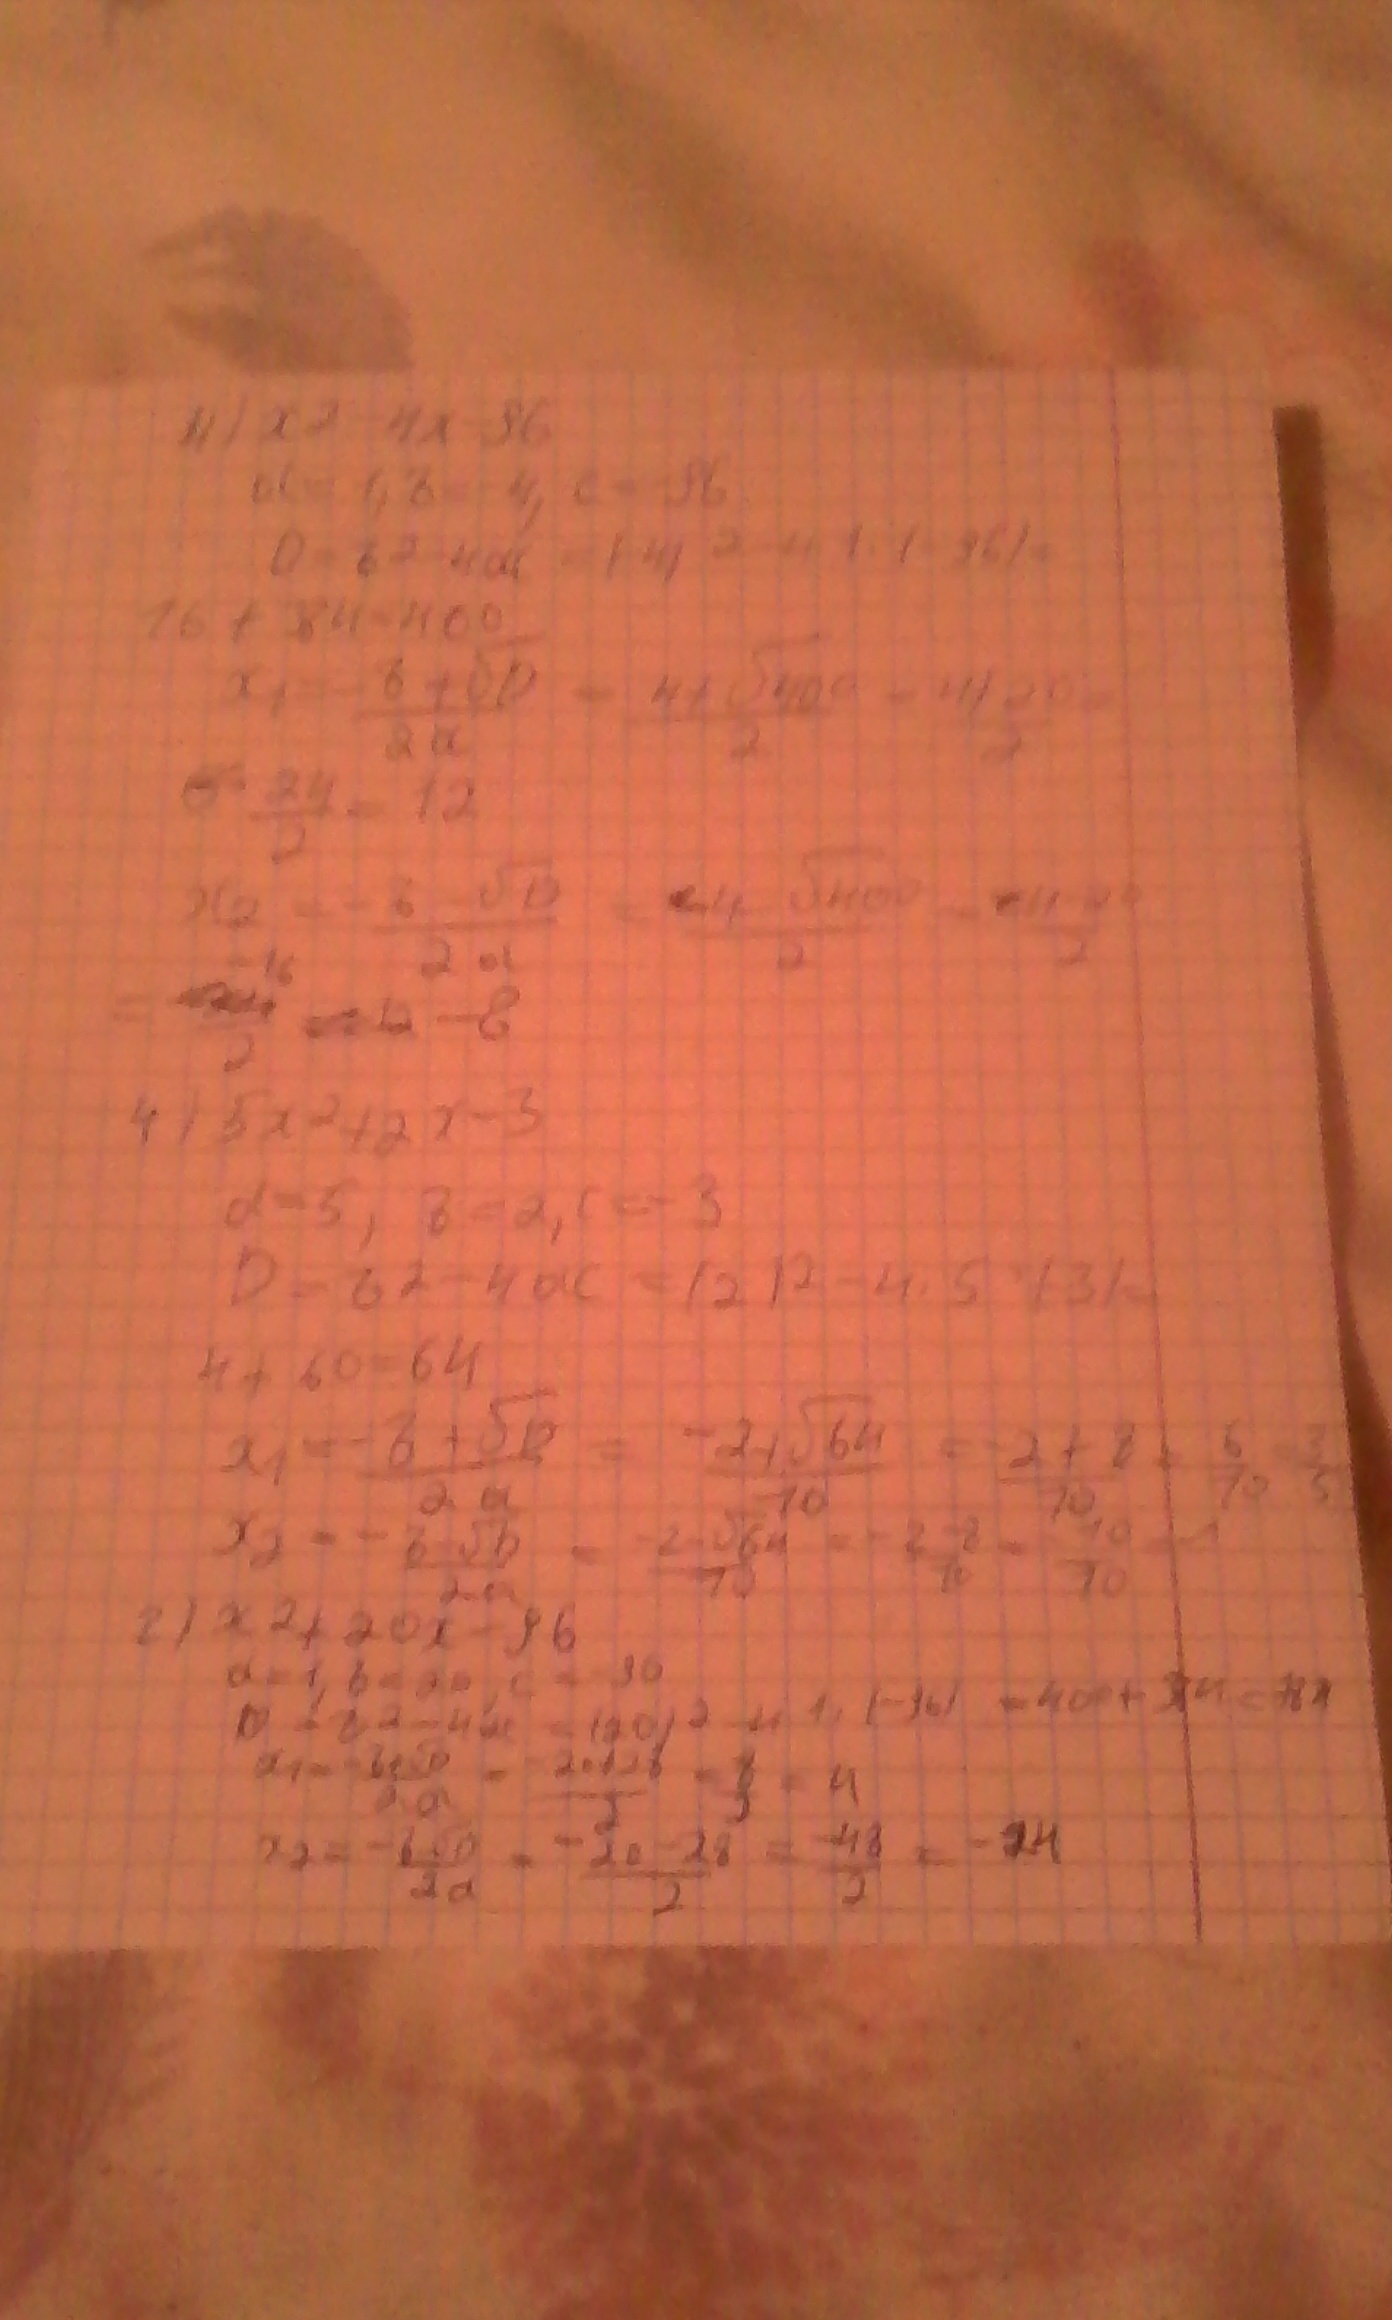 x2-4x-96
a=1, b=-4, c=-96
D=b2-4ac=(-4)2-4·1·(-96)=
16+384=400
x1=-b+√D/2a = 4+√400/2 = 4+20/2=
24/2=12
x2=-b-√D/2a = 4-√400/2 = 4-20/2
=-16/2 -8
4) 5x2+2x-3
a=5, b=2, c=-3
D=b2-4ac=(2)2-4·5·(-3)=
4+60=64
x1=-b+√D/2a = -2+√64/10 = -2+8/10 = 6/10 = 3/5
x2=-b-√D/2a = -2-√64/10 = -2-8/10 = -10/10 = -1
2) x2+20x-96
a=1, b=20, c=-96
D=b2-4ac=(20)2-4·1·(-96) =400+384=784
x1=-b+√D/2a = -20+28/2 = 8/2 = 4
x2=-b-√D/2a = -20-28/2 = -48/2 = -24